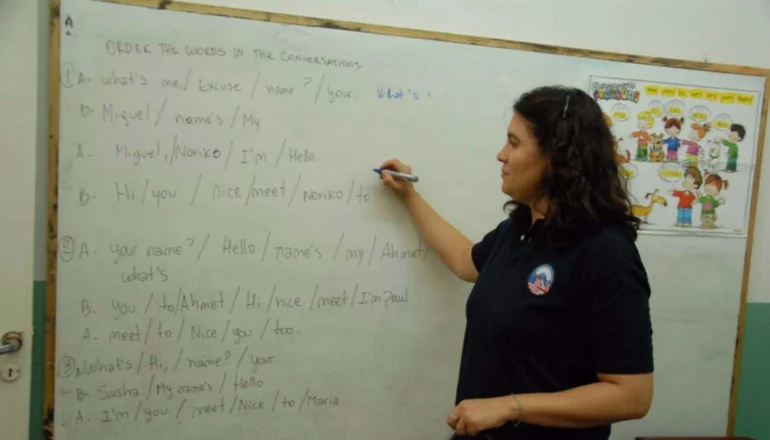 ORDER THE WORDS IN THE CONVERSATIONS
1 A- what's me / Excuse / name? / your. What's
B- Miguel / name's / My
A. Miguel, / Noriko / I'm / Hello
B. Hi / you / nice / meet / Noriko / to
2 A- your name? / Hello / name's / my / Ahmet /
what's
B. you / to / Ahmet / Hi / nice / meet / I'm Paul.
A. meet / to / Nice / you / too.
3 A. What's / Hi, / name? / your
B- Sasha / My name's / Hello
A. I'm / you / meet / Nice / to / Maria.